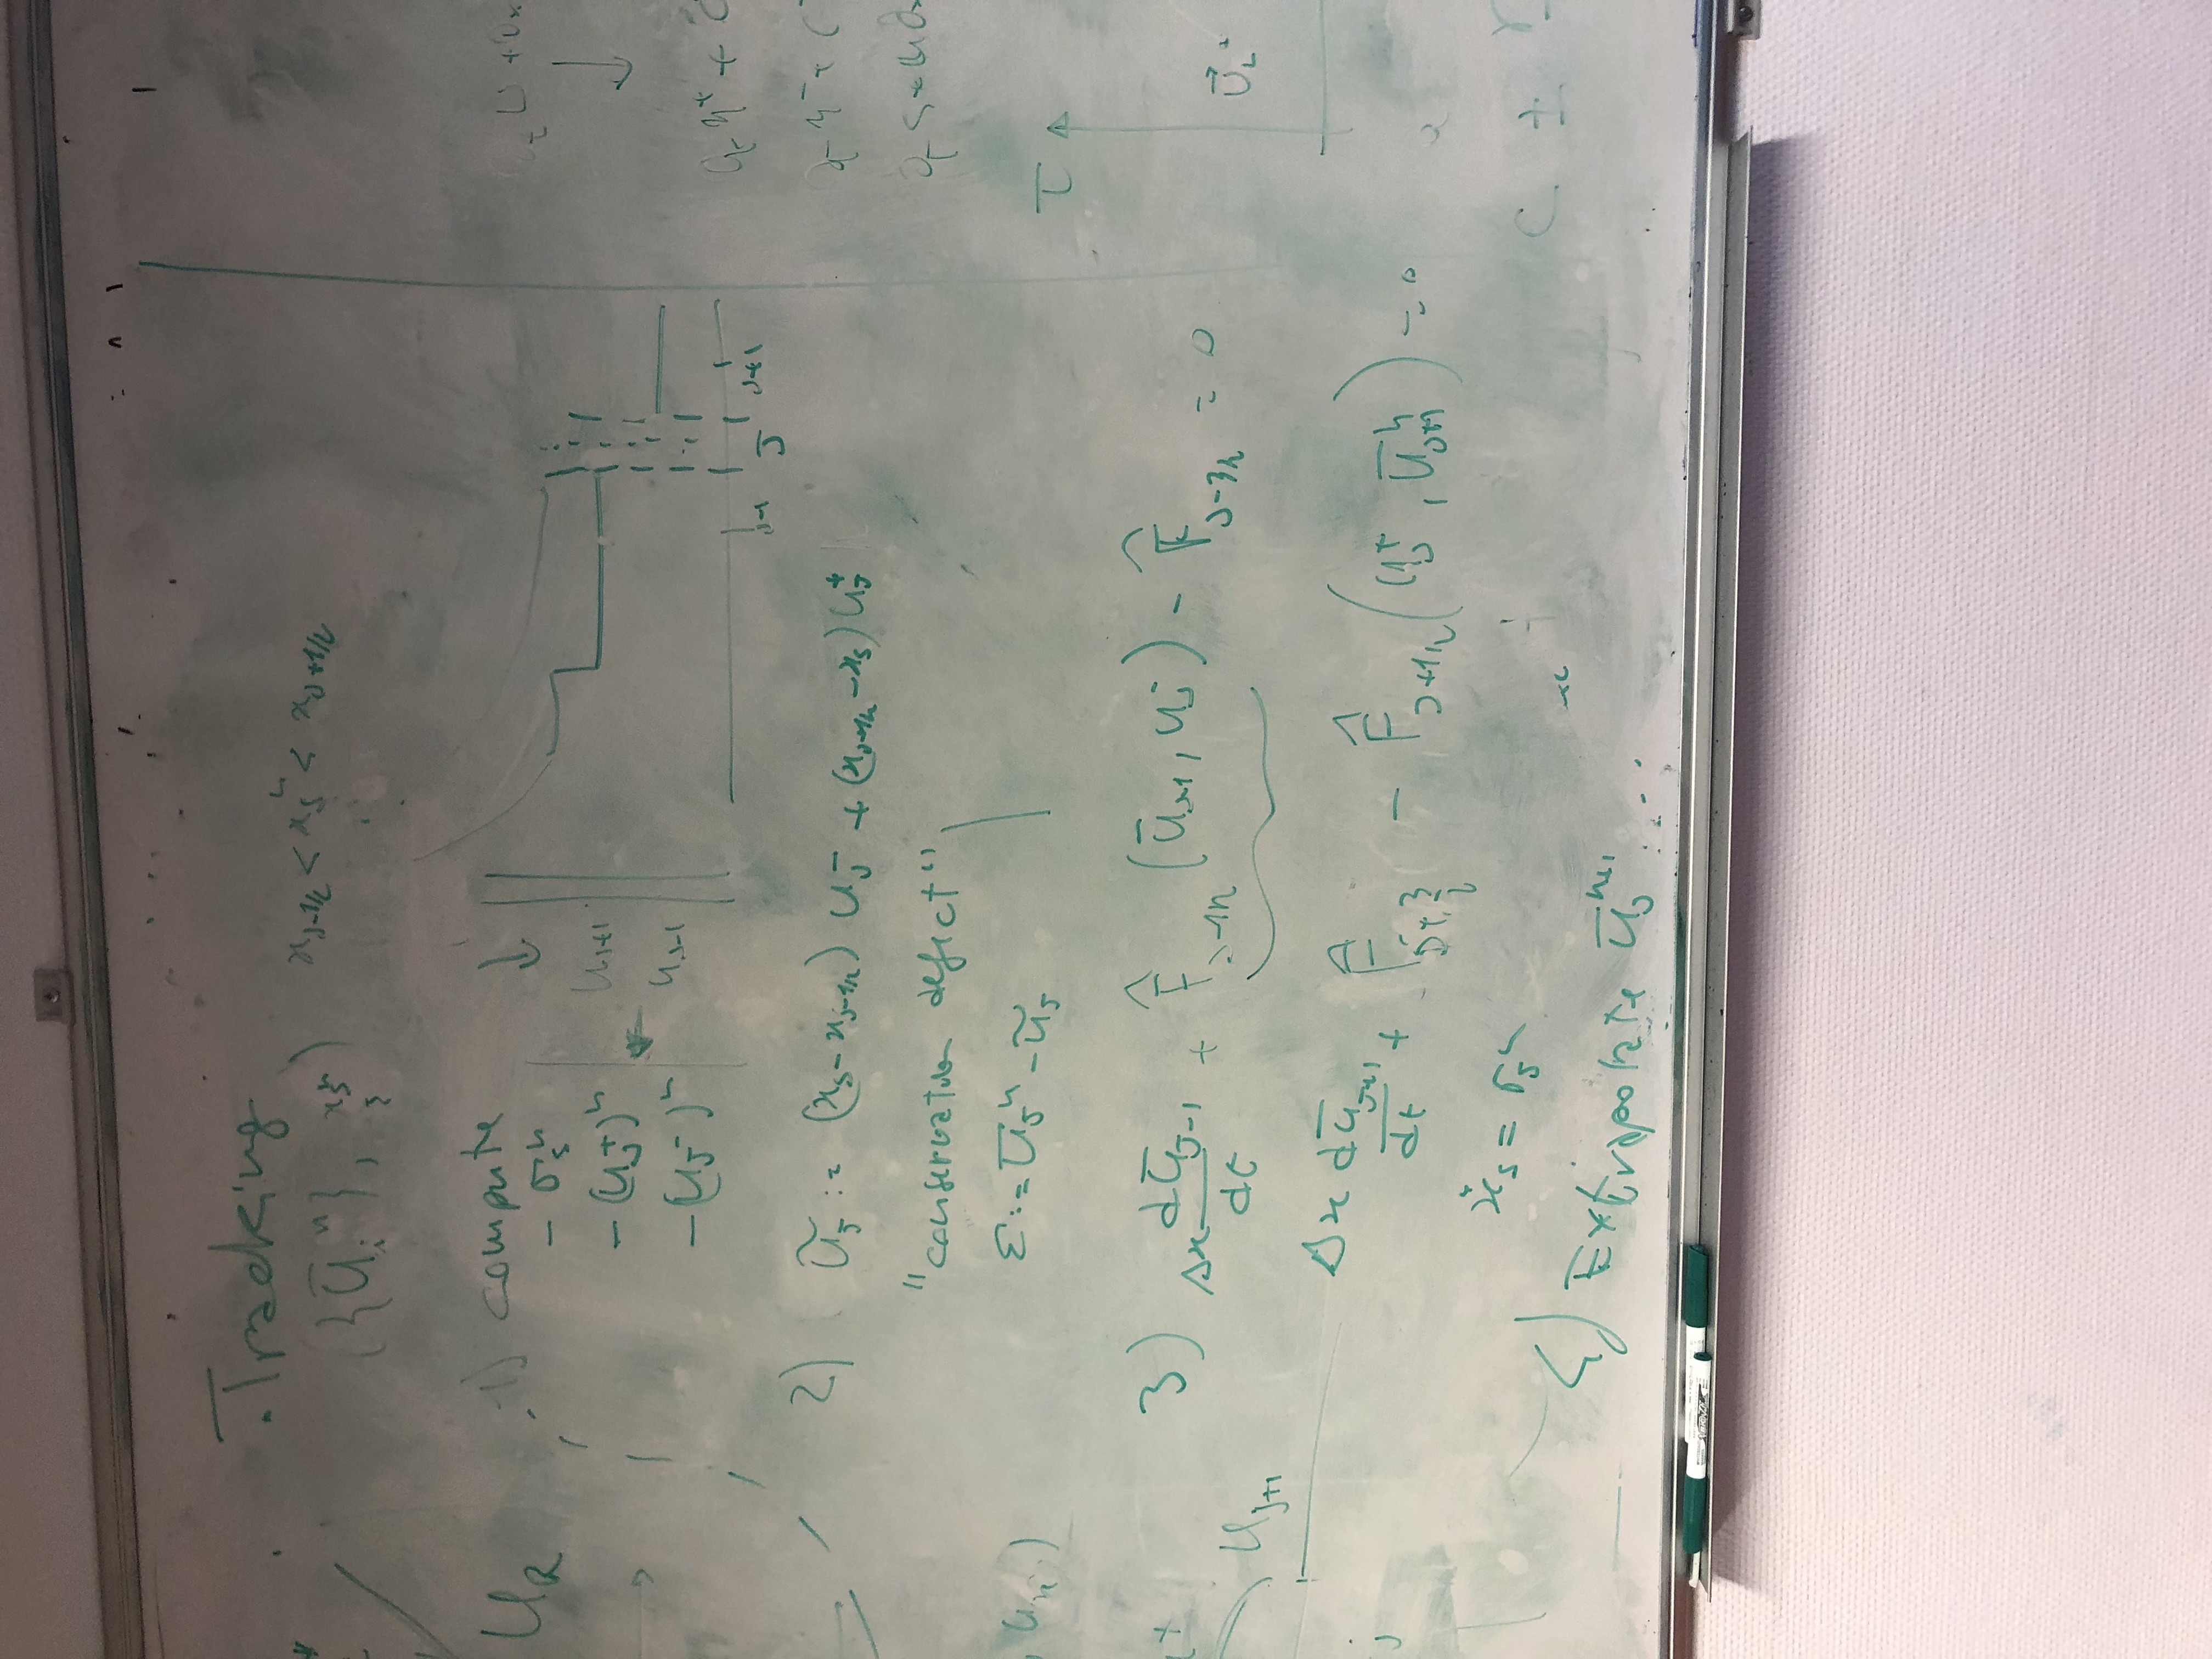 U_R
, u_{n} )
u_{j+1}
j
Tracking
({Ū_i^n}, x_s^n)
x_{J-1/2} < x_s^n < x_{J+1/2}
1) compute
- σ_s^n
- (u_J^+)^n
- (u_J^-)^n
↓
u_{J+1}
u_{J-1}
J-1 J J+1
2) ũ_J := (x_s - x_{J-1/2}) u_J^- + (x_{J+1/2} - x_s) u_J^+
"conservation defect"
ε := ū_J^n - ũ_J
3) Δx dū_{J-1}/dt + F̂_{J-1/2} (ū_{J-1}, u_J^-) - F̂_{J-3/2} = 0
Δx dū_{J+1}/dt + F̂_{J+3/2} - F̂_{J+1/2} (u_J^+, ū_{J+1}^n) = 0
ẋ_s = σ_s^n
4) Extrapolate ū_J^{n+1} ....
↓
τ
c ±